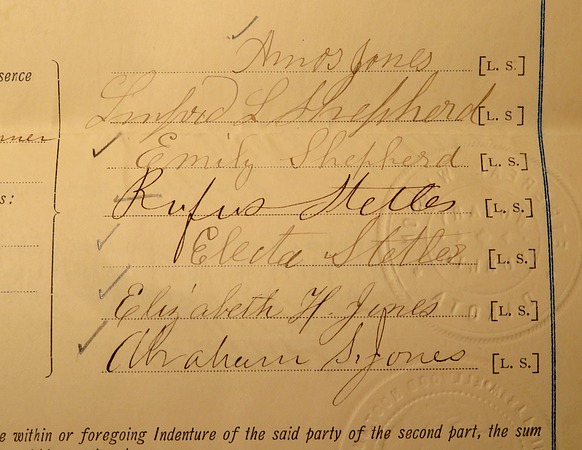 Amos Jones [L. S.]
sence
Linford L Shepherd [L. S]
Emily Shepherd [L. S.]
Rufus Stetler [L. S.]
s:
Electa Stetler [L. S.]
Elizabeth H. Jones [L. S.]
Abraham S. Jones [L. S.]
e within or foregoing Indenture of the said party of the second part, the sum